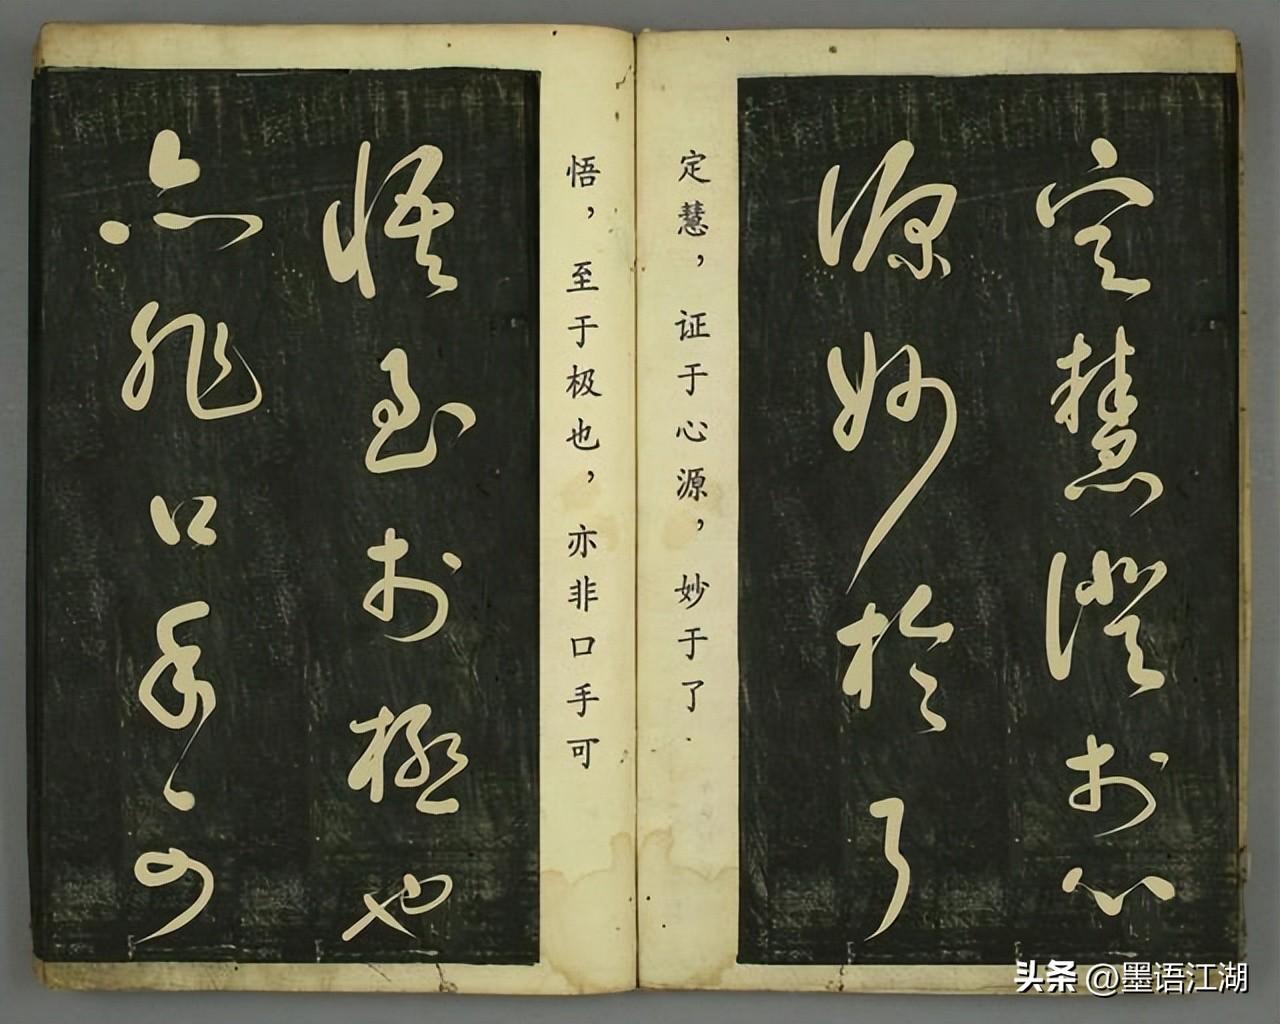 定慧證於心
源妙於了
定慧，证于心源，妙于了
悟，至于极也，亦非口手可
悟至於極也
亦非口手可
头条 @墨语江湖